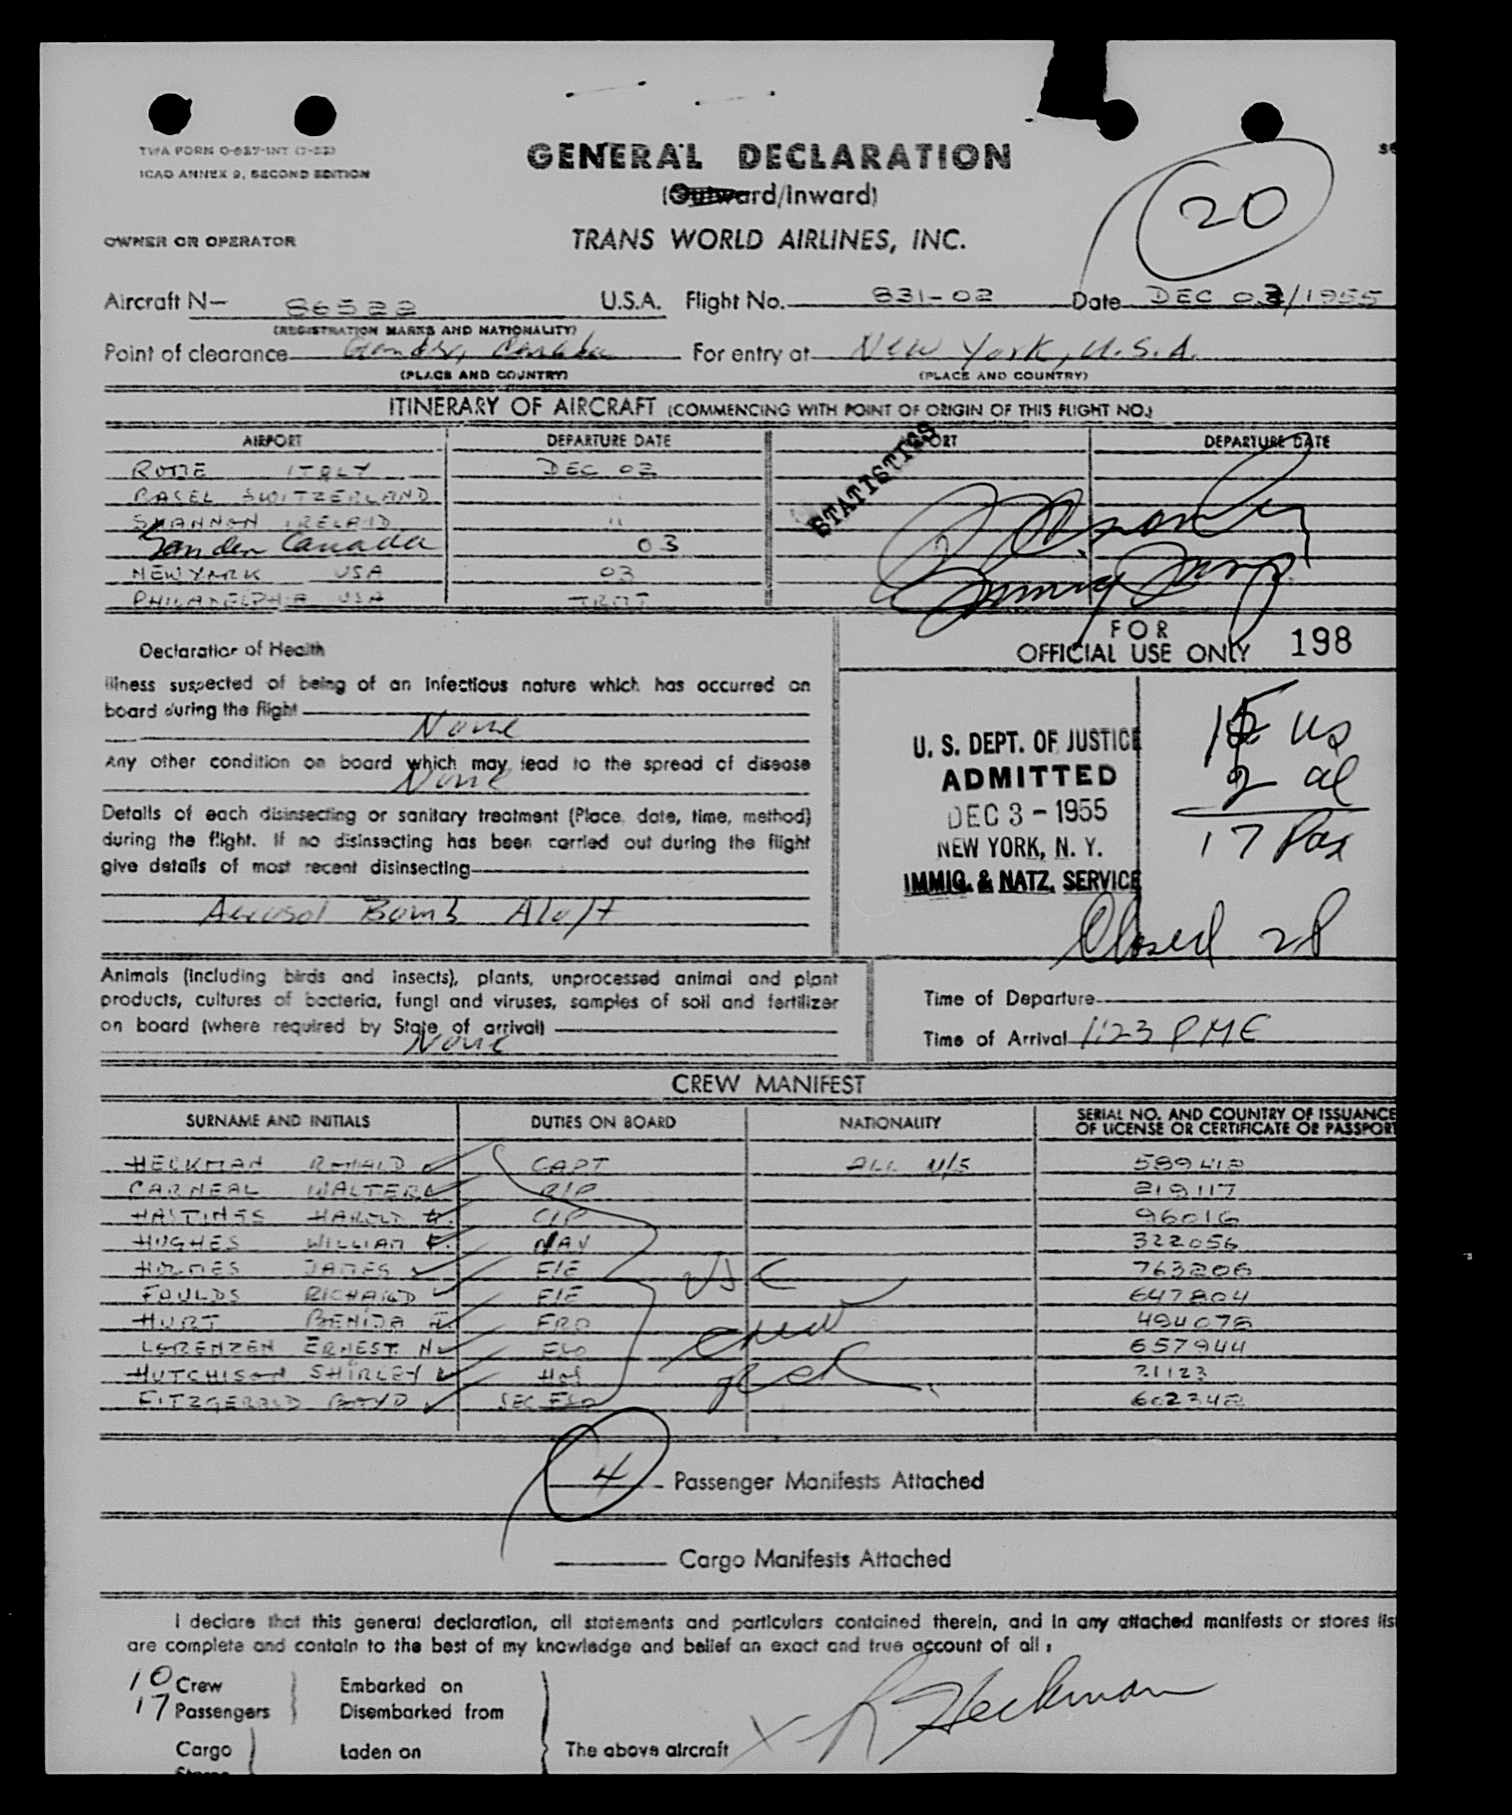 TWA FORM O-827-INT (7-52)
ICAO ANNEX 9, SECOND EDITION
GENERAL DECLARATION
(Outward/Inward)
20
OWNER OR OPERATOR
TRANS WORLD AIRLINES, INC.
Aircraft N- 86522 U.S.A. Flight No. 831-02 Date DEC 03/1955
(REGISTRATION MARKS AND NATIONALITY)
Point of clearance Gander, Canada For entry at New York, U.S.A.
(PLACE AND COUNTRY) (PLACE AND COUNTRY)
ITINERARY OF AIRCRAFT (COMMENCING WITH POINT OF ORIGIN OF THIS FLIGHT NO.)
AIRPORT DEPARTURE DATE DEPARTURE DATE
STATISTICS
ROME ITALY DEC 02
BASEL SWITZERLAND "
SHANNON IRELAND "
Gander Canada 03
NEW YORK USA 03
PHILADELPHIA USA TRMT
FOR
OFFICIAL USE ONLY 198
Declaration of Health
Illness suspected of being of an infectious nature which has occurred on
board during the flight
None
Any other condition on board which may lead to the spread of disease
None
Details of each disinsecting or sanitary treatment (Place, date, time, method)
during the flight. If no disinsecting has been carried out during the flight
give details of most recent disinsecting
Aerosol Bomb Aloft
U. S. DEPT. OF JUSTICE
ADMITTED
DEC 3 - 1955
NEW YORK, N. Y.
IMMIG. & NATZ. SERVICE
15 us
2 al
17 Pax
Closed 28
Animals (including birds and insects), plants, unprocessed animal and plant
products, cultures of bacteria, fungi and viruses, samples of soil and fertilizer
on board (where required by State of arrival)
None
Time of Departure
Time of Arrival 1:23 PME
CREW MANIFEST
SURNAME AND INITIALS DUTIES ON BOARD NATIONALITY SERIAL NO. AND COUNTRY OF ISSUANCE
OF LICENSE OR CERTIFICATE OR PASSPORT
HECKMAN RONALD CAPT ALL U/S 589412
CARNEAL WALTER 219117
HASTINGS HAROLD 96016
HUGHES WILLIAM F. NAV 322056
HOLMES JAMES F/E 763206
FOULDS RICHARD F/E 647804
HURT BENIJA FRO 494078
LORENZEN ERNEST N 657944
HUTCHISON SHIRLEY HOS 21123
FITZGERALD BOYD SEC 602342
USC
crew
4 Passenger Manifests Attached
Cargo Manifests Attached
I declare that this general declaration, all statements and particulars contained therein, and in any attached manifests or stores lis
are complete and contain to the best of my knowledge and belief an exact and true account of all :
10 Crew Embarked on
17 Passengers Disembarked from
Cargo Laden on The above aircraft
X R Heckman